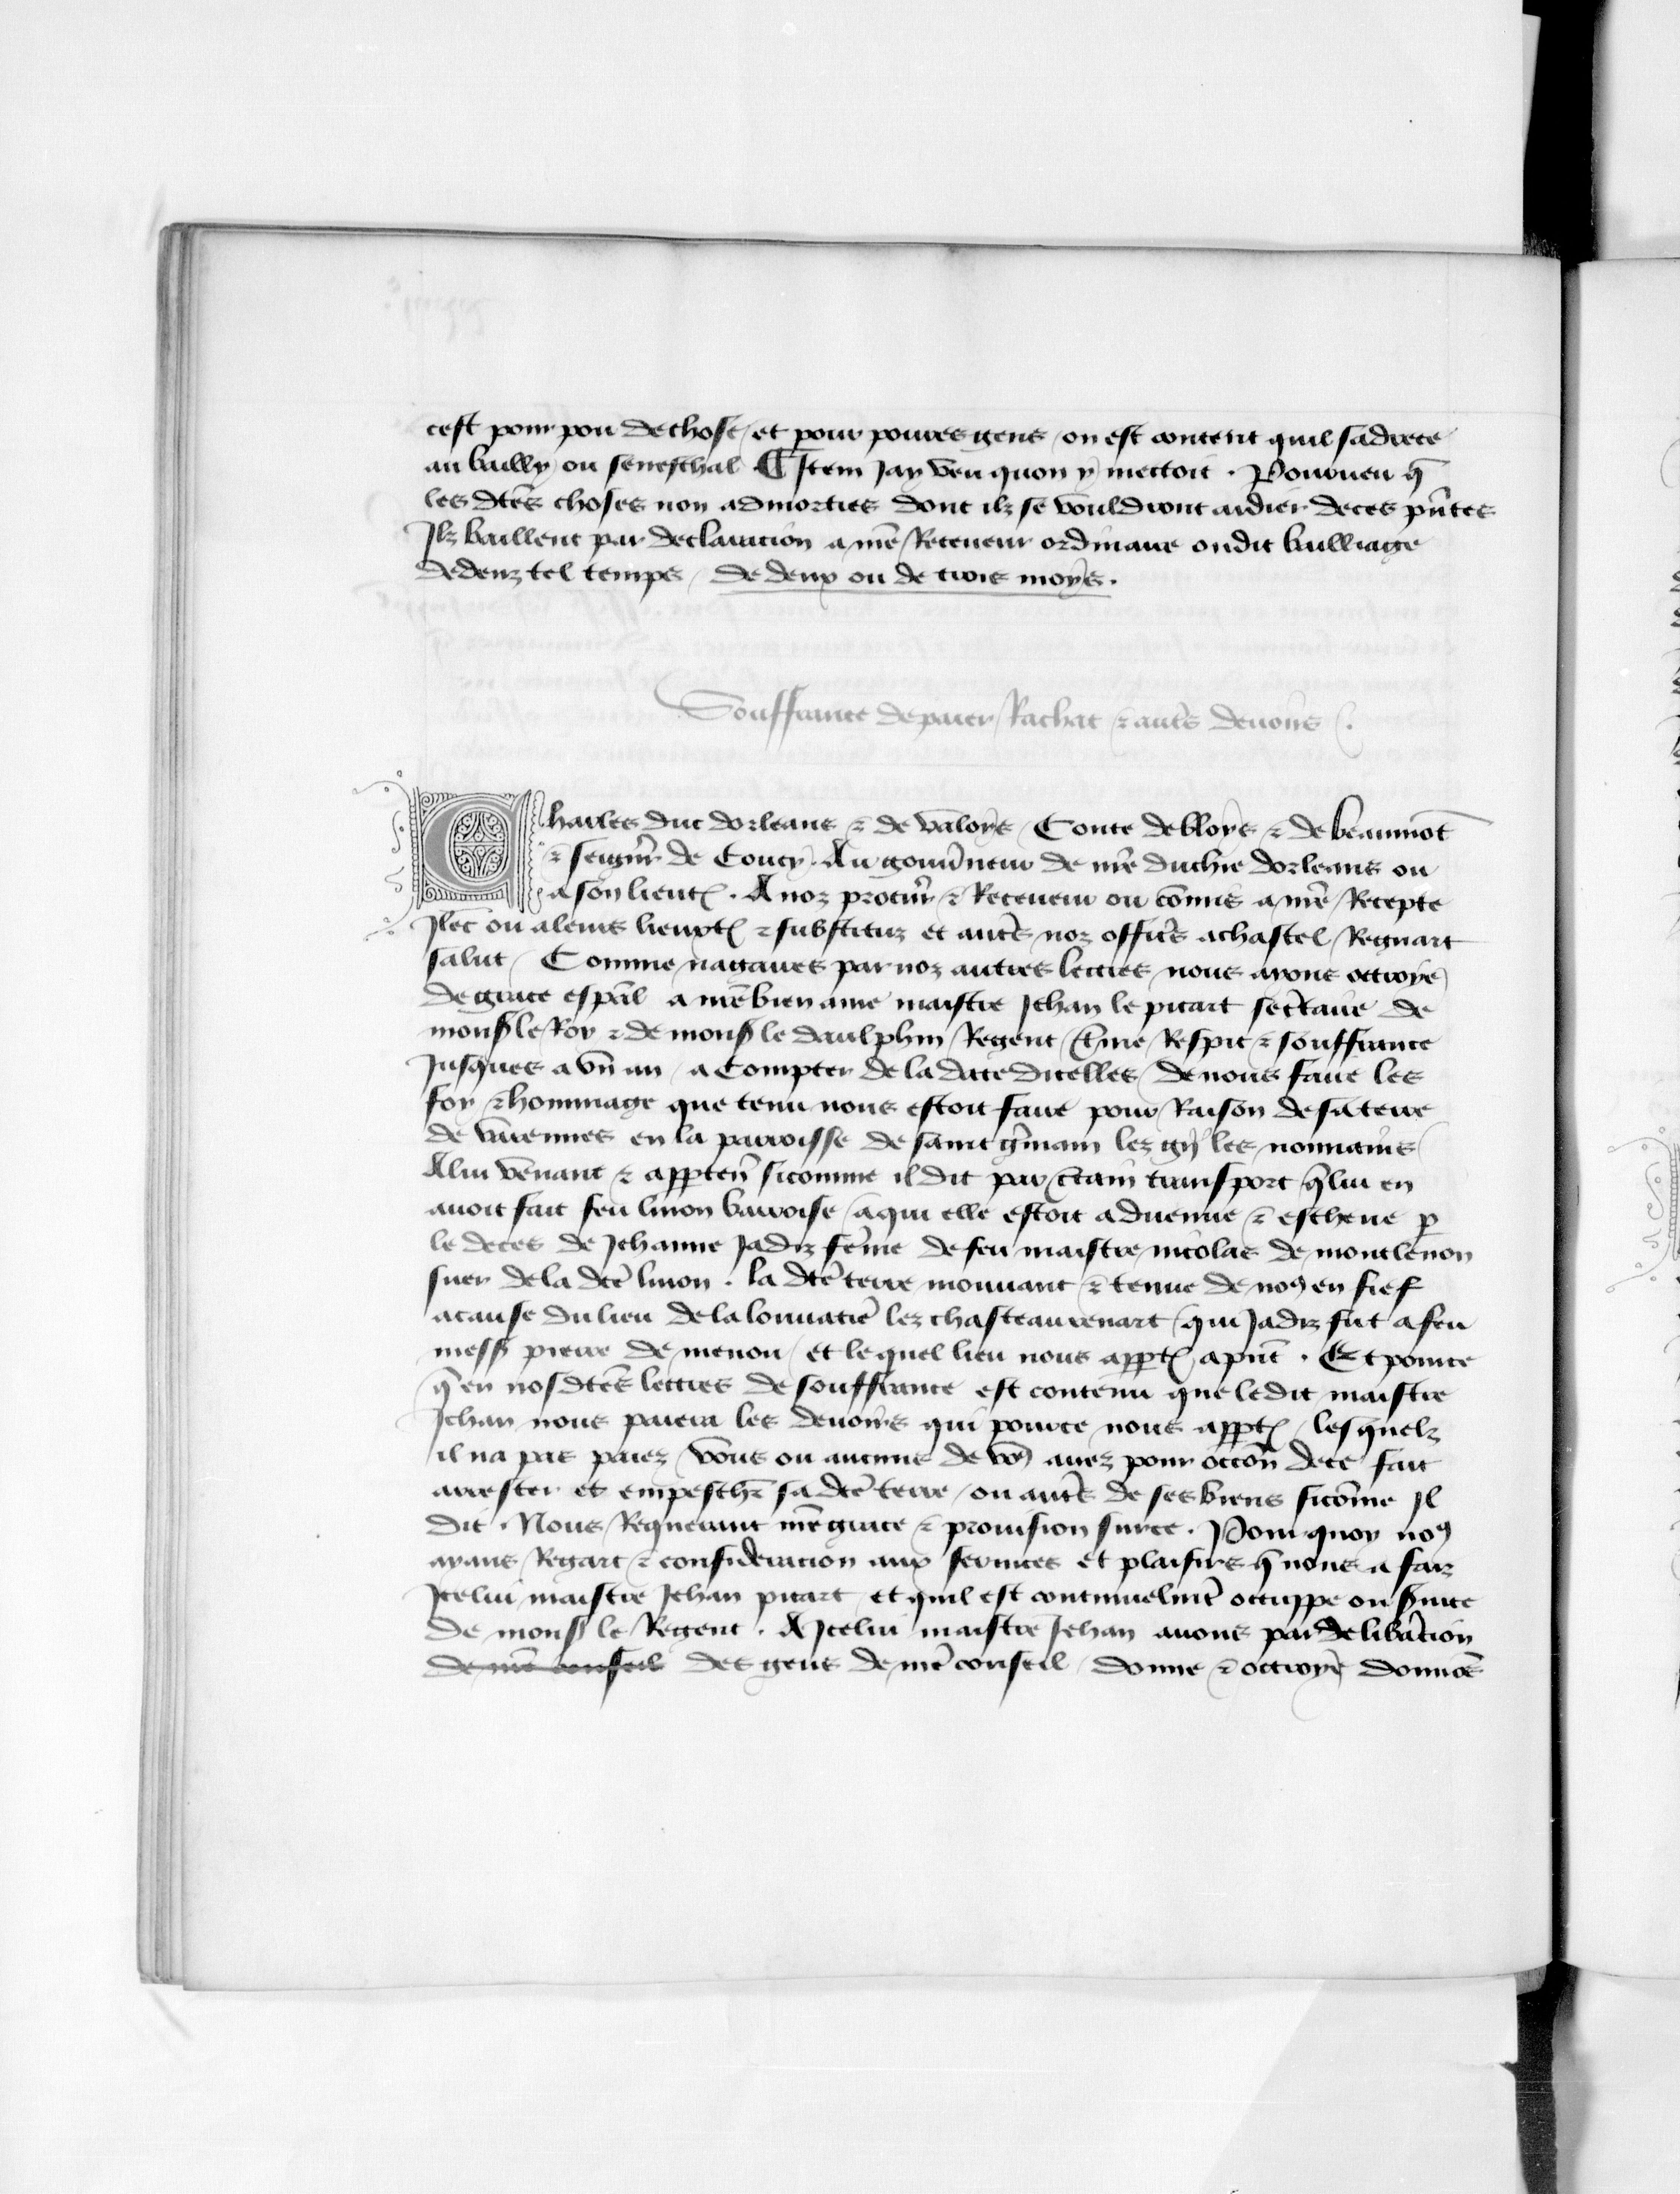 cest pour pou de chose / et pour poures gens / on est content quil sadrece
au bailly ou seneschal ¶ Item Jay veu quon y mectoit . Pourueu q̄
les dc̄es choses non admorties dont ilz se vouldront aidier de ces pñtes
Ilz baillent par declaracion a nr̄e Receueur ordinaire oudit bailliage
dedenz tel temps / de deux ou de trois moys .
Souffrance de paier Rachat & autr̄s deuoirs .
Charles duc dorleans & de valoys / Conte de bloys & de beaumōt
& seignr̄ de Coucy . Au gouūneur de nr̄e duchie dorleans ou
a son lieuten̄ . A noz procur̄ & Receueur ou cōmis a nr̄e Recepte
Ilec ou a leurs lieuxt̄ & substituz et autr̄s noz offic̄rs a chastel Regnart
salut / Comme nagaires par noz autres lectres nous ayons octroye
de grace esp̄al a nr̄e bien ame maistre Jehan le picart secr̄taire de
mons̄ le Roy & de mons̄ le daulphin Regent t̄me Respit & souffrance
Jusques a vn̄ an / a Compter de la date dicelles / de nous faire les
foy & hommage que tenu nous estoit faire pour Raison de sa terre
de varennes en la parroisse de saint gr̄main lez gy les nonnains
A lui venant & appten̄ sicomme il dit par c̄tain transport q̄ lui en
auoit fait feu linon barroise / a qui elle estoit aduenue & escheue p̄
le deces de Jehanne Jadiz fēme de feu maistre nicolas de montlenon
suer de la dc̄e linon . la dc̄e terre mouuant & tenue de nō en fief
a cause du lieu de la louuatier̄ lez chasteaurenart / qui Jadiz fut a feu
mess̄ pierre de menou / et lequel lieu nous appt̄ a pñt . Et pource
q̄ en nosdc̄es lectres de souffrance est contenu que ledit maistre
Jehan nous paiera les deuoirs qui pource nous appt̄ / lesquelz
il na pas paiez / vous ou aucuns de vō auez pour occōn de ce fait
arrester et empeschr̄ sa dc̄e terre / ou autr̄s de ses biens sicōme Il
dit . Nous Requerant nr̄e grace & prouision sur ce . Pour quoy nō
ayans Regart & consideracion aux seruices et plaisirs q̄ nous a faiz
Icelui maistre Jehan picart / et quil est continuelmēt occuppe ou s̄uice
de mons̄ le Regent . A Icelui maistre Jehan auons par delibāracion
de nr̄e conseil des gens de nr̄e conseil / donne & octroye donnōs